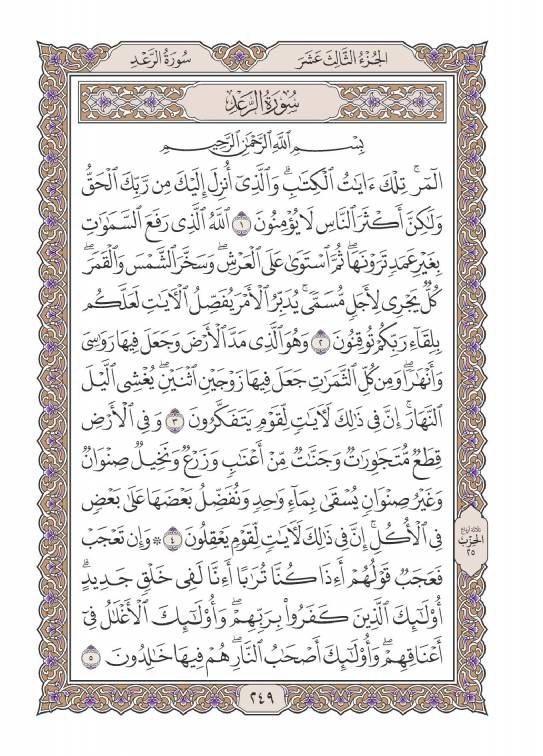 الجُزْءُ الثَّالِثَ عَشَرَ
سُورَةُ الرَّعْدِ
سُورَةُ الرَّعْدِ
بِسْمِ اللَّهِ الرَّحْمَٰنِ الرَّحِيمِ
الٓمٓرۚ تِلۡكَ ءَايَٰتُ ٱلۡكِتَٰبِۗ وَٱلَّذِيٓ أُنزِلَ إِلَيۡكَ مِن رَّبِّكَ ٱلۡحَقُّ
وَلَٰكِنَّ أَكۡثَرَ ٱلنَّاسِ لَا يُؤۡمِنُونَ ١ ٱللَّهُ ٱلَّذِي رَفَعَ ٱلسَّمَٰوَٰتِ
بِغَيۡرِ عَمَدٖ تَرَوۡنَهَاۖ ثُمَّ ٱسۡتَوَىٰ عَلَى ٱلۡعَرۡشِۖ وَسَخَّرَ ٱلشَّمۡسَ وَٱلۡقَمَرَۖ
كُلّٞ يَجۡرِي لِأَجَلٖ مُّسَمّٗىۚ يُدَبِّرُ ٱلۡأَمۡرَ يُفَصِّلُ ٱلۡأٓيَٰتِ لَعَلَّكُم
بِلِقَآءِ رَبِّكُمۡ تُوقِنُونَ ٢ وَهُوَ ٱلَّذِي مَدَّ ٱلۡأَرۡضَ وَجَعَلَ فِيهَا رَوَٰسِيَ
وَأَنۡهَٰرٗاۖ وَمِن كُلِّ ٱلثَّمَرَٰتِ جَعَلَ فِيهَا زَوۡجَيۡنِ ٱثۡنَيۡنِۖ يُغۡشِي ٱلَّيۡلَ
ٱلنَّهَارَۚ إِنَّ فِي ذَٰلِكَ لَأٓيَٰتٖ لِّقَوۡمٖ يَتَفَكَّرُونَ ٣ وَفِي ٱلۡأَرۡضِ
قِطَعٞ مُّتَجَٰوِرَٰتٞ وَجَنَّٰتٞ مِّنۡ أَعۡنَٰبٖ وَزَرۡعٞ وَنَخِيلٞ صِنۡوَانٞ
وَغَيۡرُ صِنۡوَانٖ يُسۡقَىٰ بِمَآءٖ وَٰحِدٖ وَنُفَضِّلُ بَعۡضَهَا عَلَىٰ بَعۡضٖ
فِي ٱلۡأُكُلِۚ إِنَّ فِي ذَٰلِكَ لَأٓيَٰتٖ لِّقَوۡمٖ يَعۡقِلُونَ ٤ ۞ وَإِن تَعۡجَبۡ
فَعَجَبٞ قَوۡلُهُمۡ أَءِذَا كُنَّا تُرَٰبًا أَءِنَّا لَفِي خَلۡقٖ جَدِيدٍۗ
أُوْلَٰٓئِكَ ٱلَّذِينَ كَفَرُواْ بِرَبِّهِمۡۖ وَأُوْلَٰٓئِكَ ٱلۡأَغۡلَٰلُ فِيٓ
أَعۡنَاقِهِمۡۖ وَأُوْلَٰٓئِكَ أَصۡحَٰبُ ٱلنَّارِۖ هُمۡ فِيهَا خَٰلِدُونَ ٥
ثلاثة أرباع
الحزب
٢٥
٢٤٩